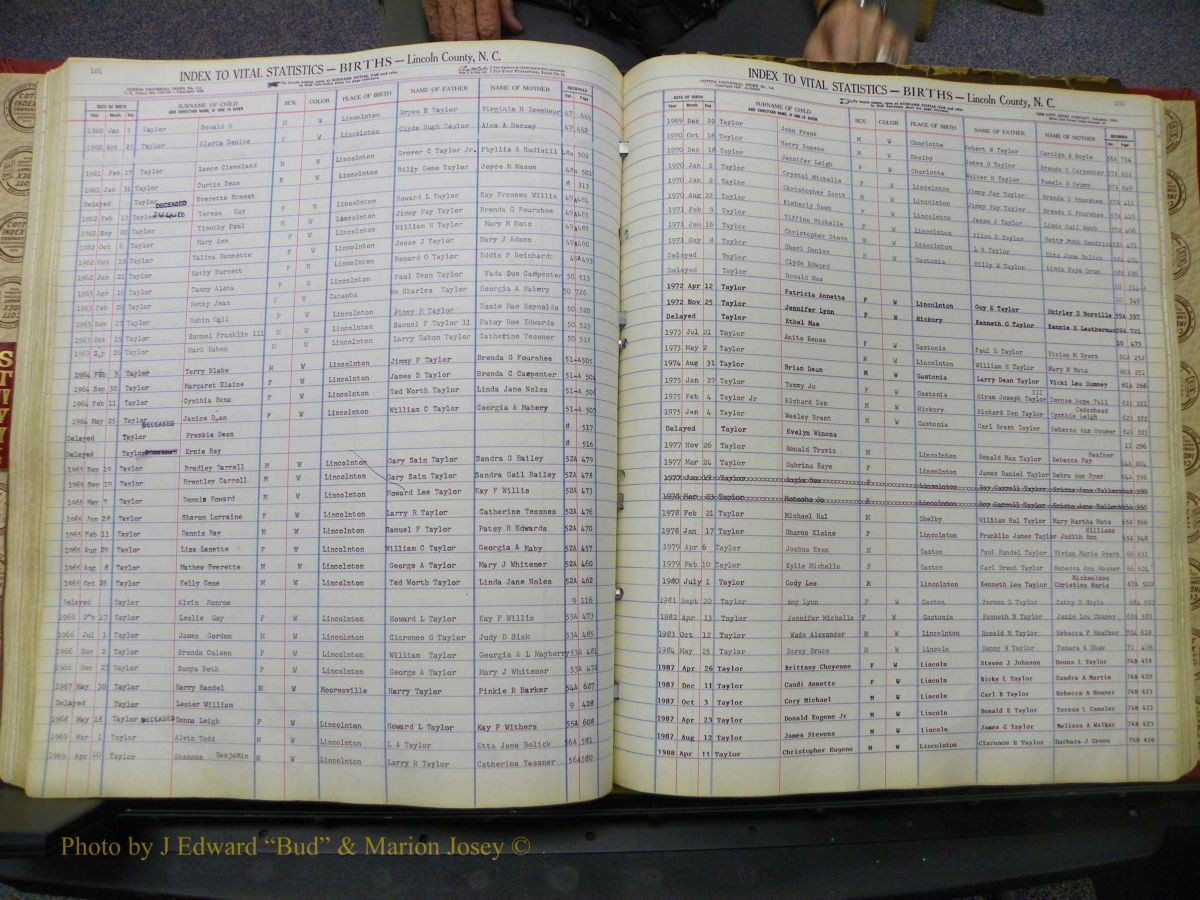 101
INDEX TO VITAL STATISTICS — BIRTHS — Lincoln County, N. C.
DATE OF BIRTH
Year Month Day
SURNAME OF CHILD
AND CHRISTIAN NAME, IF ONE IS GIVEN
SEX
COLOR
PLACE OF BIRTH
NAME OF FATHER
NAME OF MOTHER
RECORDED
Vol. Page
1960 Jan 5 Taylor Donald H M W Lincolnton Bryon E Taylor Virginia R Isenhour 47 444
1960 Oct 25 Taylor Gloria Denice F W Lincolnton Clyde Hugh Taylor Alma A Dorsey 47 442
1961 Feb 17 Taylor Lane Cleveland M W Lincolnton Grover C Taylor Jr. Phyllis A Rudisill 48a 502
1961 Jan 31 Taylor Curtis Dean M W Lincolnton Billy Gene Taylor Joyce M Mason 48a 501
Delayed Taylor DECEASED Everette Ernest 8 313
1962 Feb 15 Taylor Teresa Kay F W Lincolnton Howard L Taylor Kay Frances Willis
1962 Sep 20 Taylor Timothy Paul M W Lincolnton Jimmy Fay Taylor Brenda G Fourshee
1962 Oct 6 Taylor Mary Ann F W Lincolnton William H Taylor Mary H Motz
1962 Oct 18 Taylor Talina Dannette F W Lincolnton Jesse J Taylor Mary J Adams
1962 Jun 22 Taylor Kathy Burnett F B Lincolnton Renard O Taylor Eddis F Reinhardt
1963 Apr 18 Taylor Tammy Aleta F W Lincolnton Paul Evan Taylor Vada Sue Carpenter 50 513
1963 Feb 26 Taylor Betty Jean F W Catawba Wm Charles Taylor Georgia A Mabery 50 726
1963 Nov 17 Taylor Robin Gail F W Lincolnton Jimmy N Taylor Essie Mae Reynolds 50 520
1963 Oct 15 Taylor Samuel Franklin III M W Lincolnton Samuel F Taylor 11 Patsy Roe Edwards 50 519
1963 Sep 25 Taylor Mark Rabon M W Lincolnton Larry Rabon Taylor Catherine Tessner 50 518
1964 Feb 3 Taylor Terry Blake M W Lincolnton Jimmy F Taylor Brenda G Fourshee 51-A 505
1964 Sep 30 Taylor Margaret Elaine F W Lincolnton James D Taylor Brenda C Carpenter 51-A
1964 Feb 11 Taylor Cynthia Rena F W Lincolnton Ted Worth Taylor Linda Jane Noles 51-A
1964 May 25 Taylor Janice Dean F W Lincolnton William C Taylor Georgia A Mabery 51-A 507
Delayed Taylor DECEASED Frankie Dean 8 517
Delayed Taylor Ernie Ray 8 516
1965 Sep 19 Taylor Bradley Darrell M W Lincolnton Gary Sain Taylor Sandra G Bailey 52A 479
1965 Sep 19 Taylor Brentley Carroll M W Lincolnton Gary Sain Taylor Sandra Gail Bailey 52A 478
1965 Mar 7 Taylor Dennis Howard M W Lincolnton Howard Lee Taylor Kay F Willis 52A 473
1965 Jun 28 Taylor Sharon Lorraine F W Lincolnton Larry R Taylor Catherine Tessnes 52A 476
1965 Feb 11 Taylor Dennis Ray M W Lincolnton Samuel F Taylor Patsy R Edwards 52A 470
1965 Aug 20 Taylor Lisa Lanette F W Lincolnton William C Taylor Georgia A Maby 52A 457
1965 Aug 8 Taylor Mathew Everette M W Lincolnton George A Taylor Mary J Whitener 52A 460
1965 Oct 26 Taylor Kelly Gene M W Lincolnton Ted Worth Taylor Linda Jane Noles 52A 462
Delayed Taylor Alvin Monroe 9 116
1966 Dec 17 Taylor Leslie Gay F W Lincolnton Howard L Taylor Kay F Willis 53A 473
1966 Jul 1 Taylor James Gordon M W Lincolnton Clarence G Taylor Judy D Sisk 53A 485
1966 Nov 2 Taylor Brenda Coleen F W Lincolnton William Taylor Georgia A L Mayberry 53A 481
1966 Dec 23 Taylor Sonya Beth F W Lincolnton George A Taylor Mary J Whitener 53A 472
1967 May 30 Taylor Harry Randel M W Mooresville Harry Taylor Pinkie R Barker 54A 627
Delayed Taylor Lester William 9 428
1968 May 18 Taylor DECEASED Donna Leigh F W Lincolnton Howard L Taylor Kay F Withers 55A 608
1969 Mar 1 Taylor Alvin Todd M W Lincolnton L A Taylor Etta Jane Bolick 56A 581
1969 Apr 10 Taylor Shannon Benjamin M W Lincolnton Larry R Taylor Catherine Tessner 56A 580
INDEX TO VITAL STATISTICS — BIRTHS — Lincoln County, N. C.
101
DATE OF BIRTH
Year Month Day
SURNAME OF CHILD
AND CHRISTIAN NAME, IF ONE IS GIVEN
SEX
COLOR
PLACE OF BIRTH
NAME OF FATHER
NAME OF MOTHER
RECORDED
Vol. Page
1969 Dec 19 Taylor John Frank M W Charlotte Robert W Taylor Carolyn A Hoyle 56A 714
1970 Oct 18 Taylor Barry Eugene M W Shelby James D Taylor Brenda C Carpenter 57A 652
1970 Dec 18 Taylor Jennifer Leigh F W Charlotte Walter H Taylor Pamela S Crump 57A 649
1970 Jan 2 Taylor Crystal Michelle F W Lincolnton Jimmy Fay Taylor Brenda G Fourshee 57A 411
1970 Jan 2 Taylor Christopher Scott M W Lincolnton Jimmy Fay Taylor Brenda G Fourshee 57A 410
1970 Aug 22 Taylor Kimberly Dawn F W Lincolnton Jesse J Taylor Linda Gail Webb 57A 406
1971 Feb 9 Taylor Tiffine Michelle F W Lincolnton Allan R Taylor Betty Ruth Hendrix 58A 471
1971 Jan 16 Taylor Christopher Steve M W Lincolnton L A Taylor Etta Jane Bolick 58A 474
1971 May 8 Taylor Sheri Denise F W Gastonia Billy W Taylor Linda Kaye Drum 58A 686
Delayed Taylor Clyde Edward 10
Delayed Taylor Ronald Max 10 349
1972 Apr 12 Taylor Patricia Annette F W Lincolnton Guy E Taylor Shirley D Borville 59A 397
1972 Nov 25 Taylor Jennifer Lynn F W Hickory Kenneth O Taylor Kennie E Leatherman 59A 721
Delayed Taylor Ethel Mae 10 473
1973 Jul 21 Taylor Anita Renee F W Lincolnton Paul R Taylor Vivian M Byers 60A 252
1973 May 2 Taylor William H Taylor Mary H Motz 60A 251
1974 Aug 31 Taylor Brian Dean M W Gastonia Larry Dean Taylor Vicki Lea Sumney 61A 266
1975 Jan 27 Taylor Tammy Jo F W Gastonia Hiram Joseph Taylor III Doresa Hope Tull 62A 221
1975 Feb 4 Taylor Jr Richard Dan M W Hickory Richard Dan Taylor Cynthia Leigh Cadenhead 62A 222
1975 Jan 4 Taylor Wesley Brent M W Gastonia Carl Brent Taylor Rebecca Ann Houser 62A 223
Delayed Taylor Evelyn Winona 11 296
1977 Nov 26 Taylor Ronald Travis M Lincolnton Ronald Max Taylor Rebecca Fay Heafner 64A 604
1977 Mar 24 Taylor Sabrina Kaye F Lincolnton James Daniel Taylor Debra Ann Dyer 64A 596
1978 Feb 21 Taylor Michael Hal M Shelby William Hal Taylor Mary Martha Motz 65A 566
1978 Jan 17 Taylor Sharon Elaine F Lincolnton Franklin James Taylor Judith Ann Williams 65A 548
1979 Apr 6 Taylor Joshua Evan M Gaston Paul Randel Taylor Vivian Marie Byers 66 631
1979 Feb 10 Taylor Kylie Michelle F Gaston Carl Brent Taylor Rebecca Ann Houser 66 624
1980 July 1 Taylor Cody Lee M Lincolnton Kenneth Lee Taylor Christine Marie Michaelson 67A 510
1981 Sept 20 Taylor Amy Lynn F W Gaston Vernon L Taylor Cathy S Hoyle
1982 Apr 13 Taylor Jennifer Michelle F W Gaston Kenneth N Taylor Janie Lou Chaney 69A 583
1983 Oct 12 Taylor Wade Alexander M W Lincolnton Ronald M Taylor Rebecca F Heafner 70A 618
1984 May 25 Taylor Corey Bruce M W Lincoln Danny H Taylor Tamara K Shaw 71 409
1987 Apr 26 Taylor Brittany Cheyenne F W Lincoln Steven J Johnson Donna L Taylor 74B 419
1987 Dec 11 Taylor Candi Annette F W Lincoln Ricky L Taylor Sandra A Martin 74B 420
1987 Oct 3 Taylor Cory Michael M W Lincoln Carl B Taylor Rebecca A Houser 74B 421
1987 Apr 23 Taylor Donald Eugene Jr M W Lincoln Donald E Taylor Teresa L Cansler 74B 422
1987 Aug 12 Taylor James Stevens M W Lincoln James G Taylor Melissa A Walker 74B 423
1988 Apr 11 Taylor Christopher Eugene M W Lincolnton Clarence E Taylor Barbara J Green 75B 426
Photo by J Edward “Bud” & Marion Josey ©